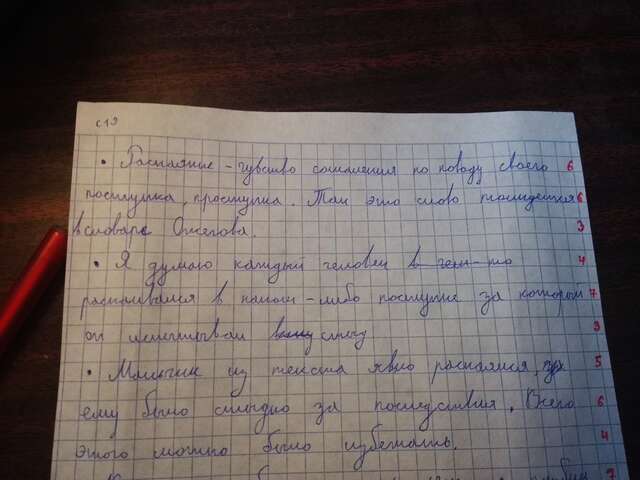 с19
• Раскаяние - чувство сожаления по поводу своего 6
поступка, проступка. Так это слово толкуется 6
в словаре Ожегова. 3
• Я думаю каждый человек в чем-то 4
раскаивался в каком-либо поступке за который 7
он испытывал стыд 3
• Мальчик из текста явно раскаялся, 5
ему было стыдно за последствия. Всего 6
этого можно было избежать. 4
7